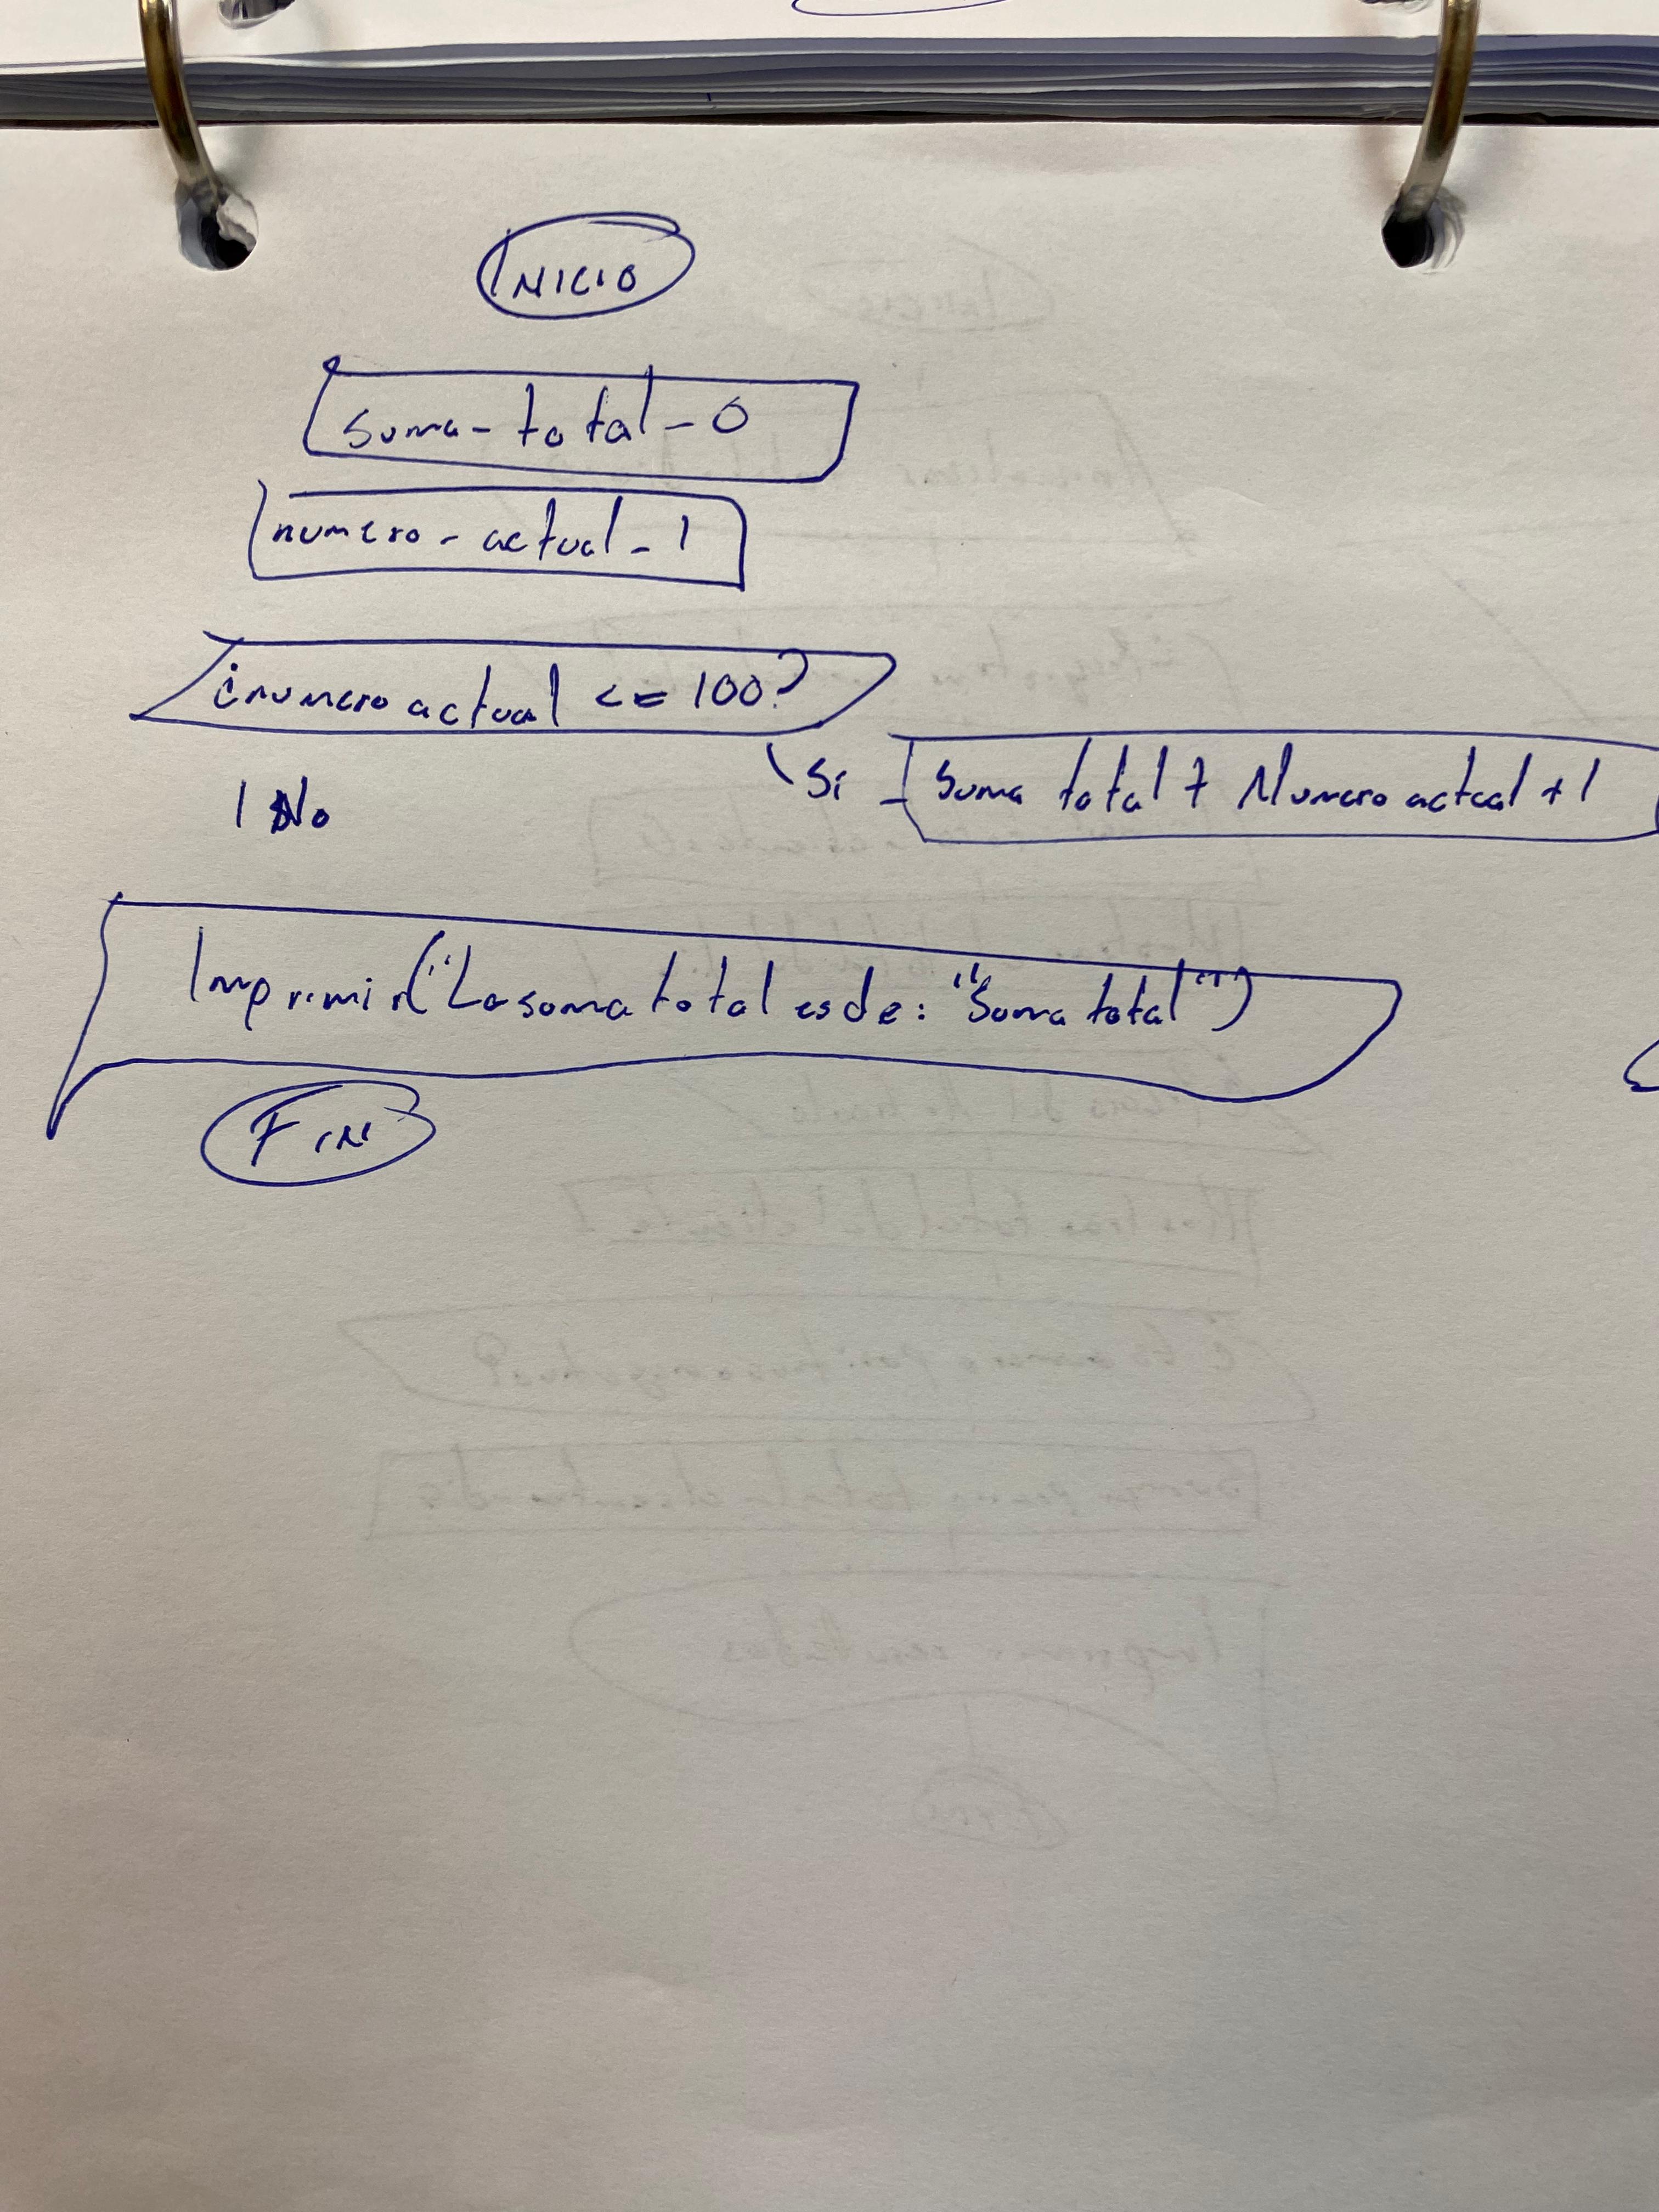 INICIO
suma - total - 0
numero - actual - 1
¿numero actual <= 100?
Si
Suma total + Numero actual + 1
No
Imprimir("La suma total es de: "Suma total")
FIN